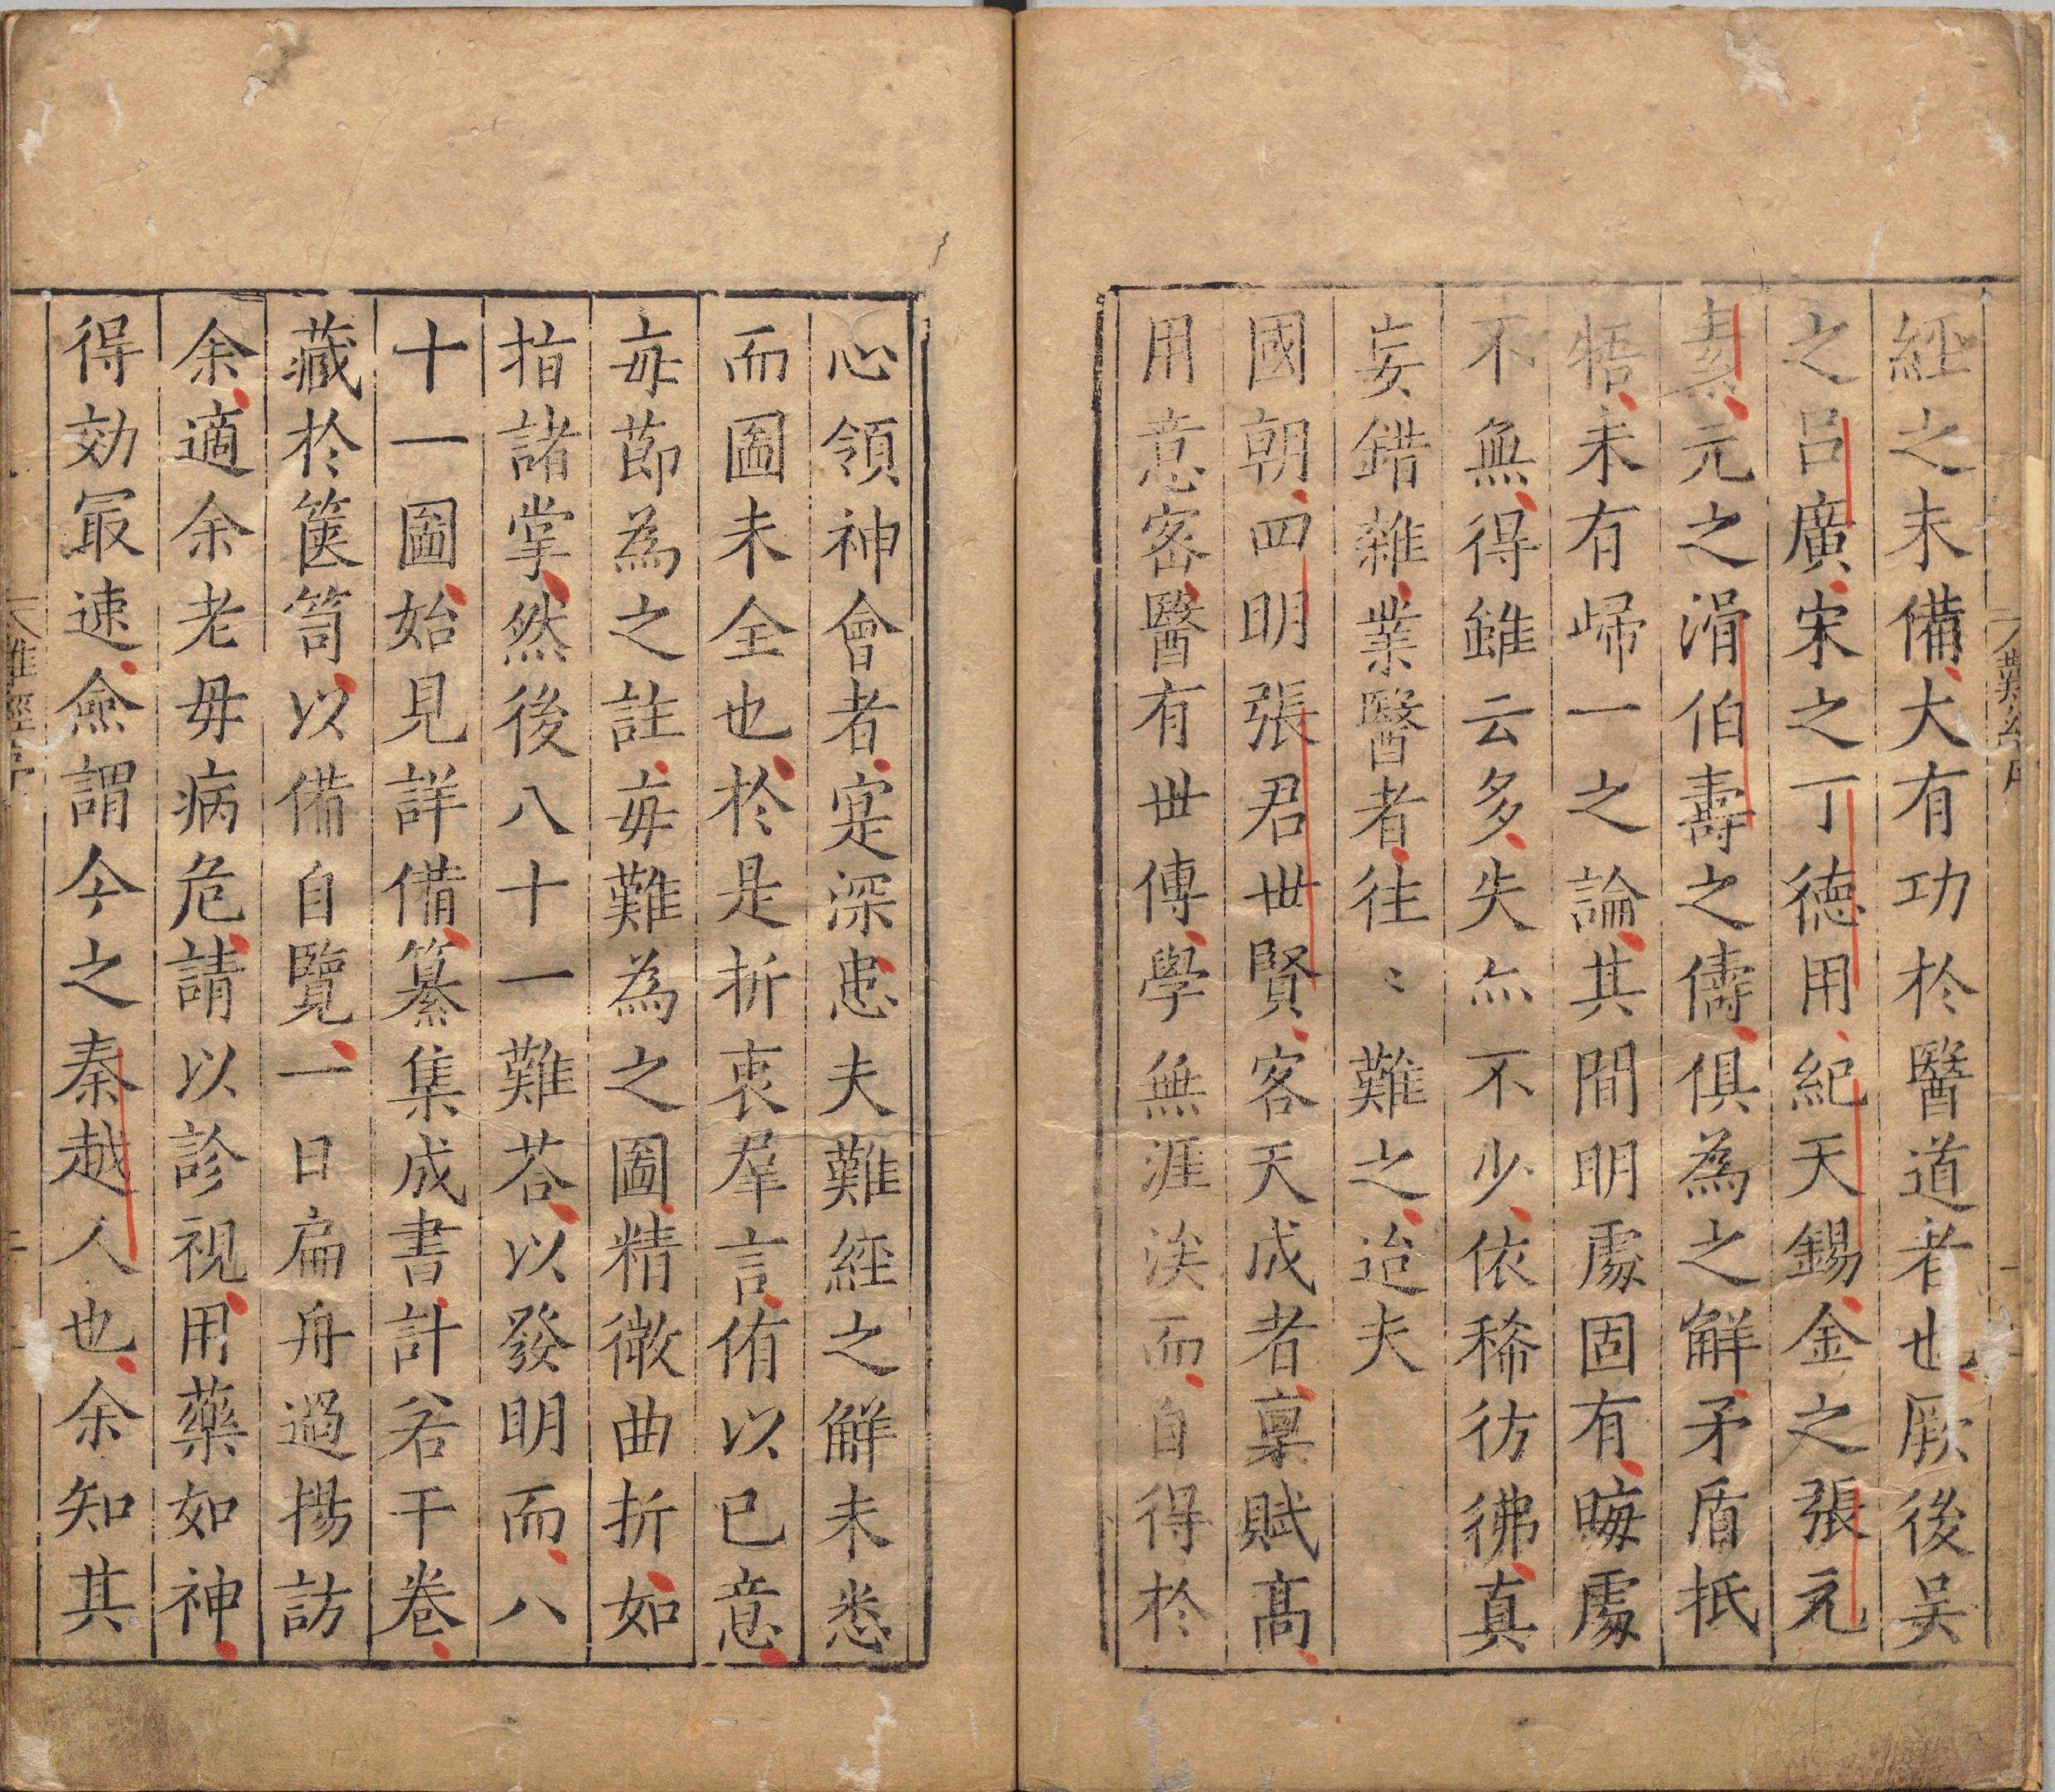 經之未備大有功於醫道者也厥後吴
之吕廣宋之丁德用紀天錫金之張元
素元之滑伯壽之儔俱為之解矛盾抵
牾未有歸一之論其間明處固有晦處
不無得雖云多失亦不少依稀彷彿真
妄錯雜業醫者往〻難之迨夫
國朝四明張君世賢客天成者稟賦高
用意密醫有世傳學無涯涘而自得於
心領神會者寔深患夫難經之解未悉
而圖未全也於是折衷羣言侑以已意
每節為之註每難為之圖精微曲折如
指諸掌然後八十一難荅以發明而八
十一圖始見詳備纂集成書計若干卷
藏於篋笥以備自覽一日扁舟過揚訪
余適余老母病危請以診視用藥如神
得効冣速僉謂今之秦越人也余知其